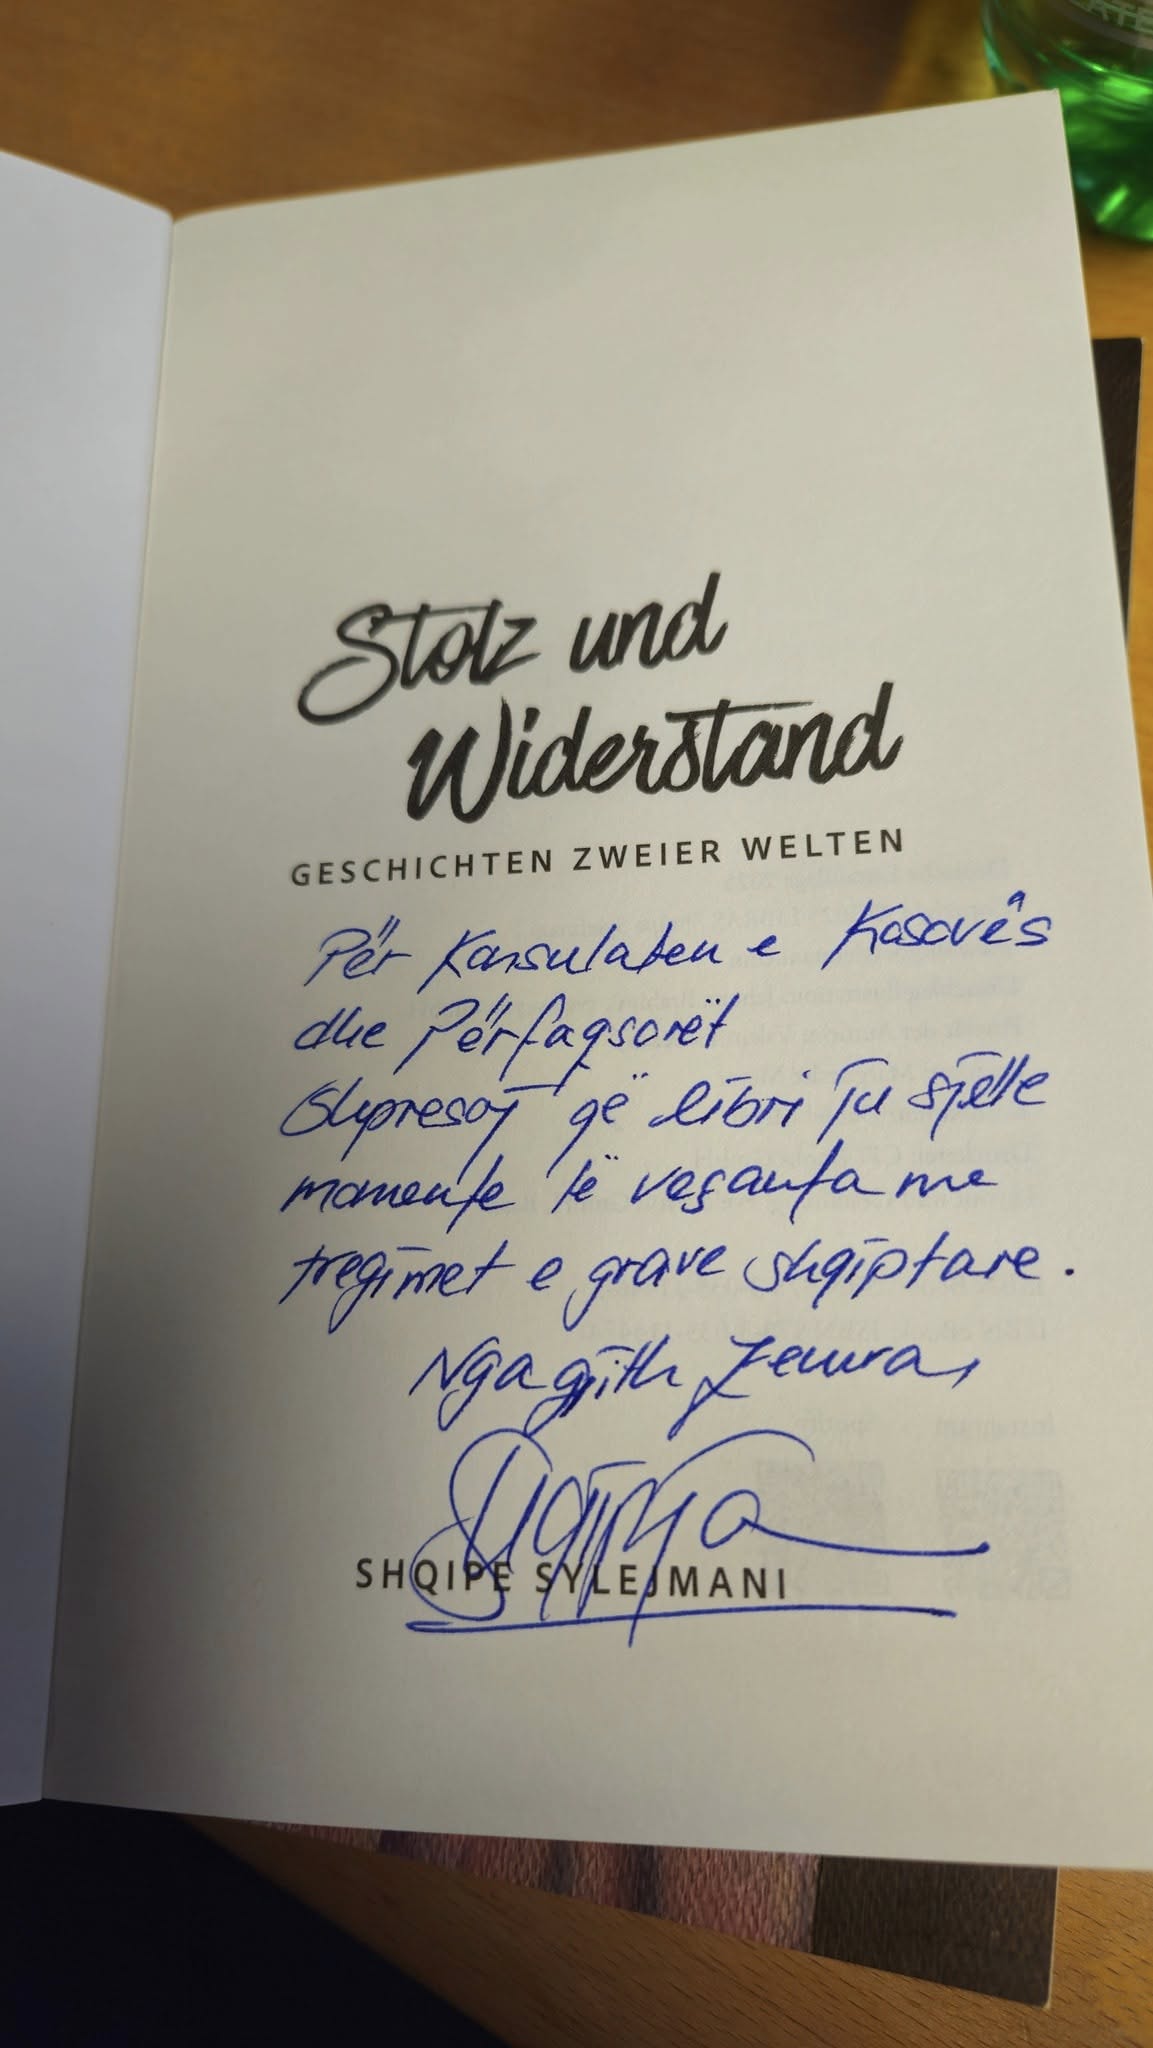 Stolz und
Widerstand
GESCHICHTEN ZWEIER WELTEN
Për Konsulaten e Kosovës
dhe Përfaqsorët
Shpresoj që libri ju sjelle
momente të veçanta me
tregimet e grave shqiptare.
Nga gjith zemra,
SHQIPE SYLEJMANI